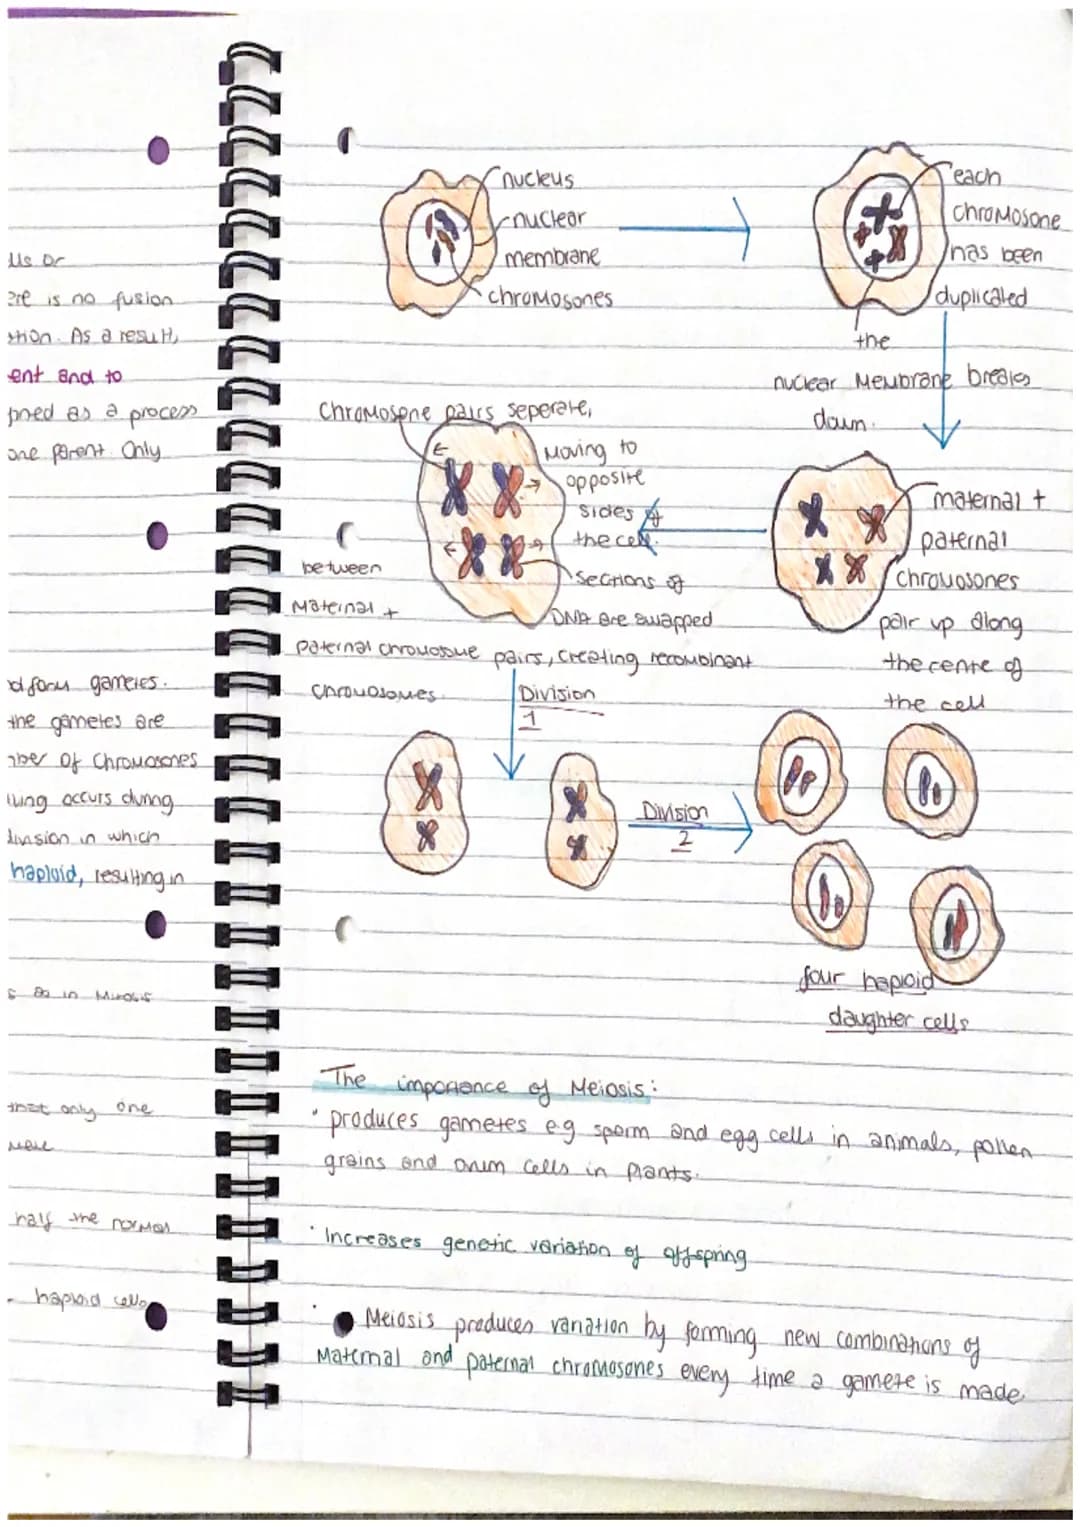 us or
ere is no fusion
ction. As a result,
ent and to
pned as a process
one parent. Only
d form gametes.
the gametes are
nber of Chromosones
lling occurs during
division in which
haploid, resulting in
s as in Mitosis
that only one
half the normal
haploid cells
nucleus
nuclear
membrane
chromosones
each
chromosone
has been
duplicated
the
nuclear Membrane breaks
down.
Chromosone pairs seperate,
Moving to
opposite
sides of
the cell.
sections of
DNA are swapped
between
Maternal +
paternal chromosome pairs, creating recombinant
chromosomes.
maternal +
paternal
chromosones
pair up along
the centre of
the cell
Division
1
Division
2
four haploid
daughter cells
The importance of Meiosis:
• produces gametes eg sperm and egg cells in animals, pollen
grains and ovum cells in plants.
• Increases genetic variation of offspring
• Meiosis produces variation by forming new combinations of
Maternal and paternal chromosones every time a gamete is made.